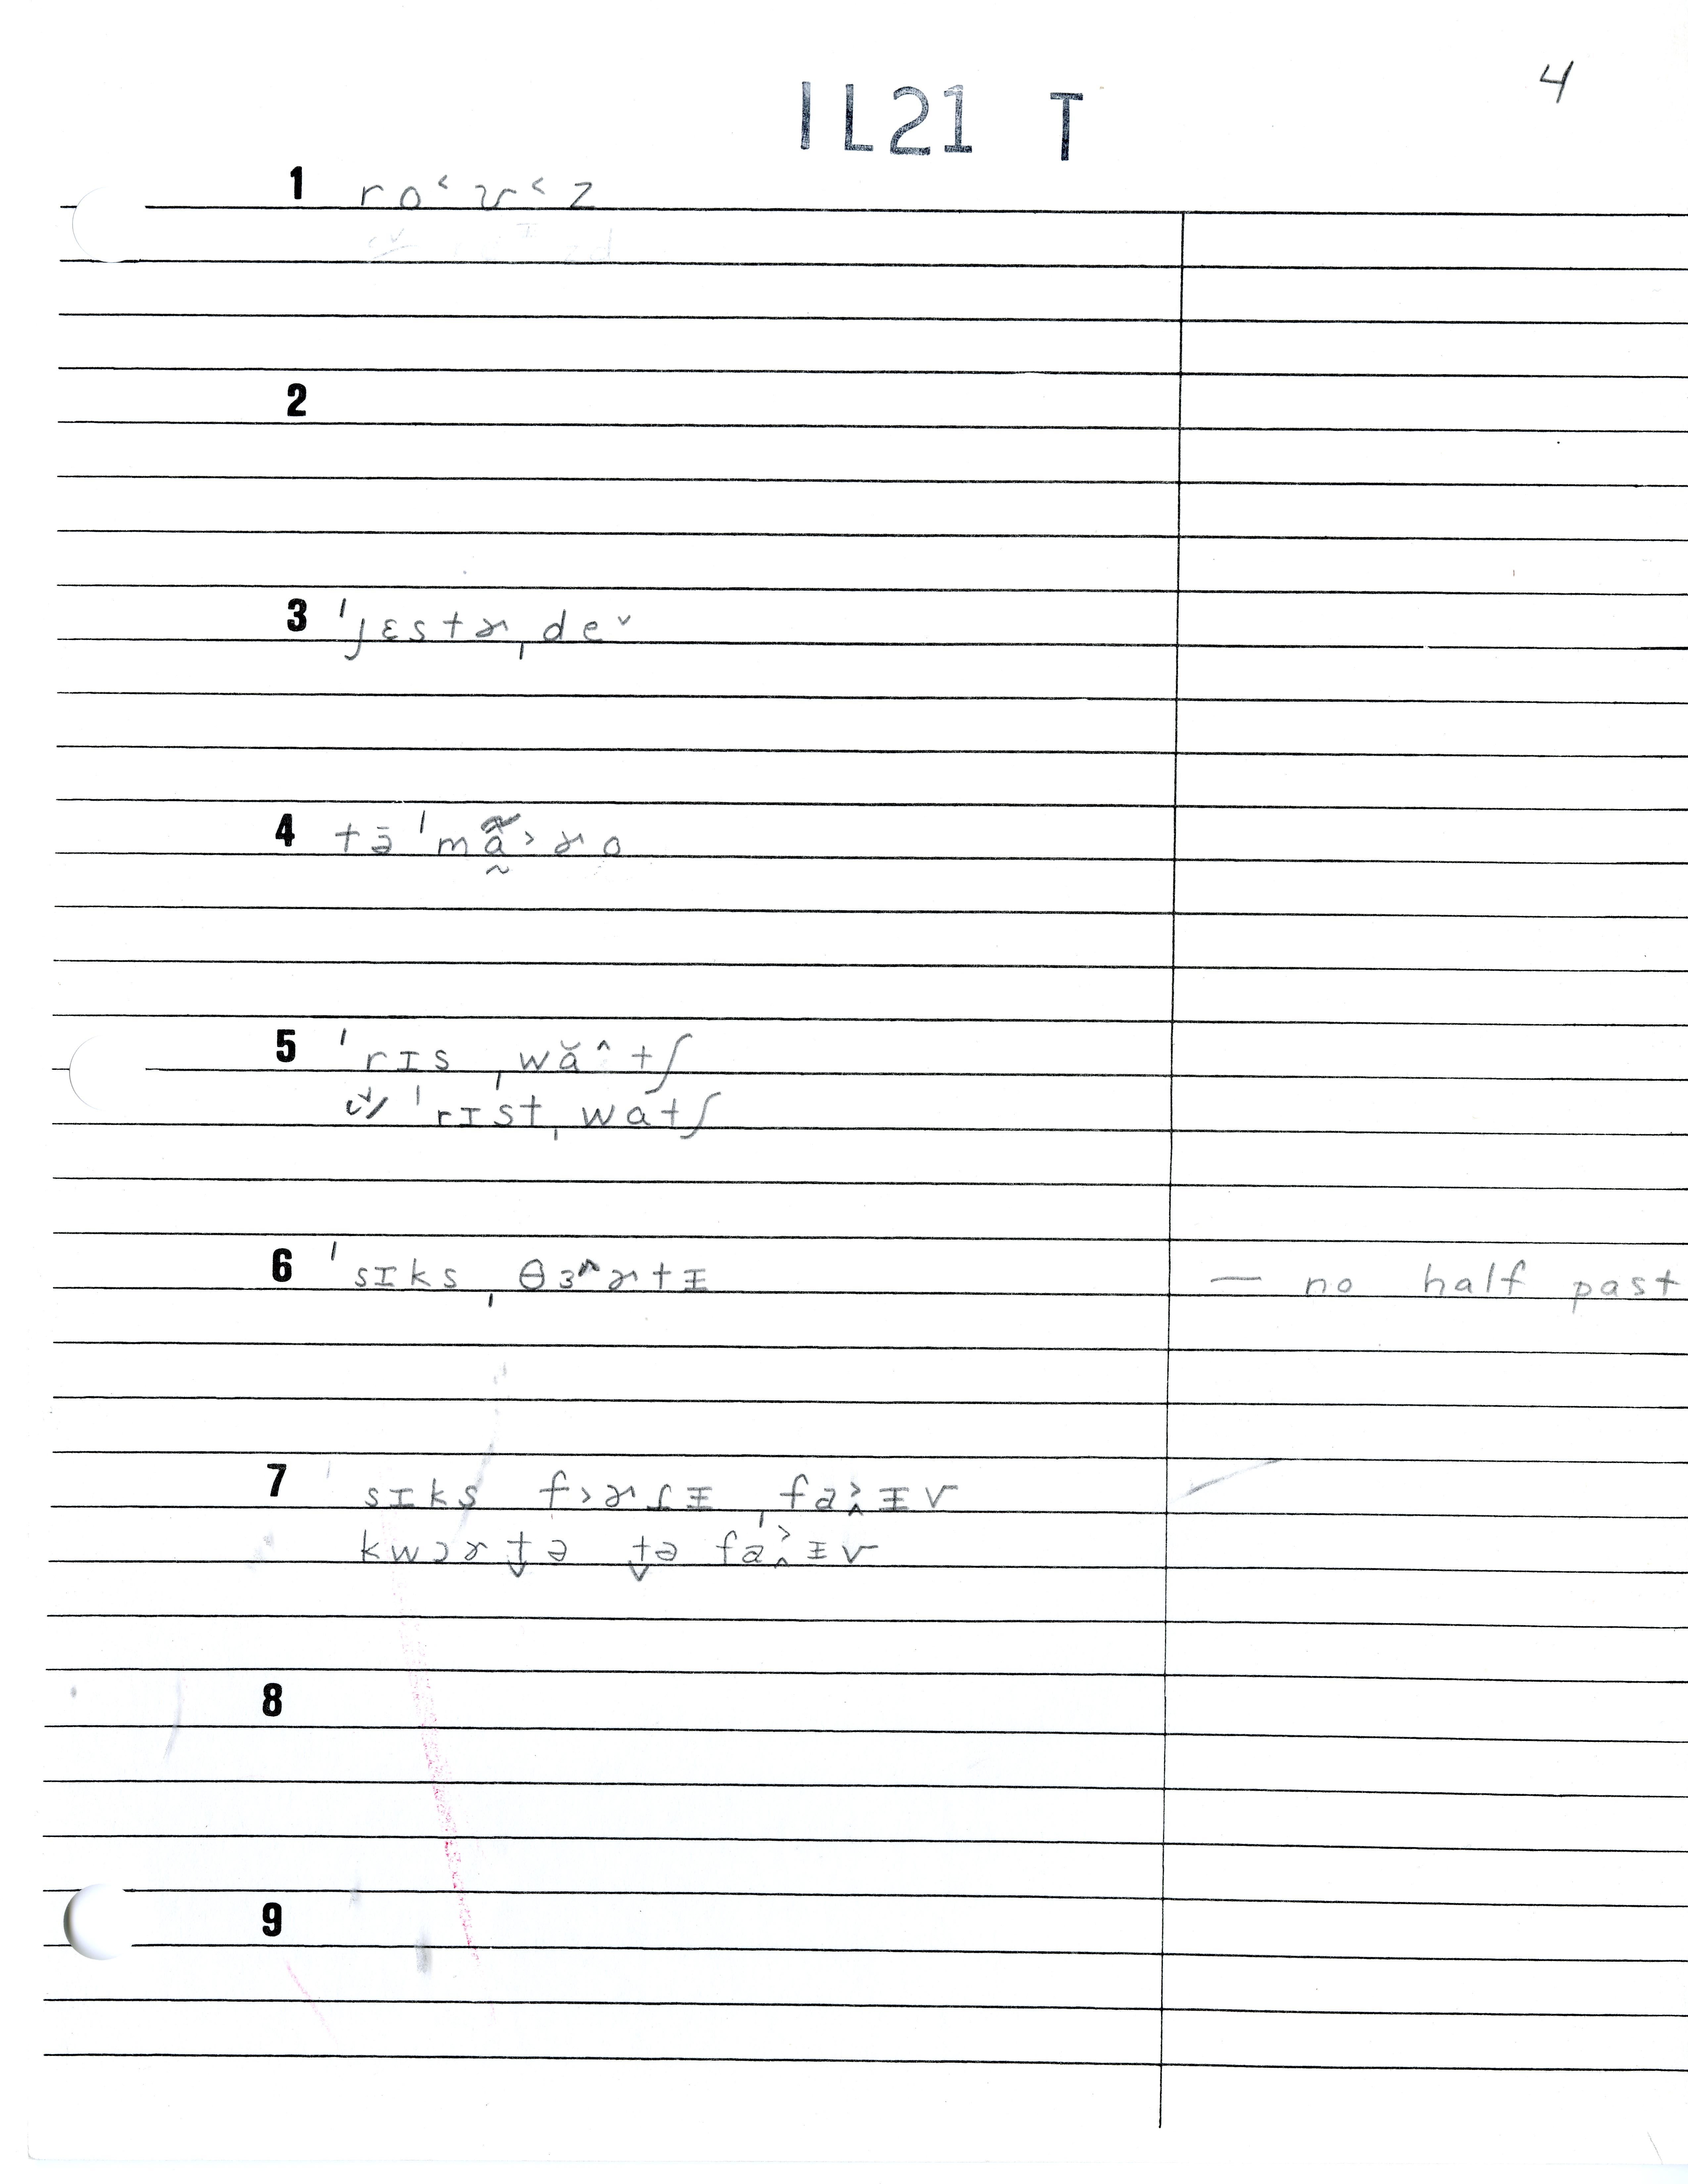 4
IL21 T
1 ro˂ʊ˂z
2
3 ˈjɛstɚˌde˅
4 tə̄ˈmɑ̰˃ɚo
5 ˈrɪsˌwɑ̆^tʃ
c˅/ ˈrɪstˌwatʃ
6 ˈsɪksˌθɜ^ɚtɪ — no half past
7 sɪks fɔɚɾɪˌfa˃ɪv
kwɔɚt̬ə t̬ə fa˃ɪv
8
9